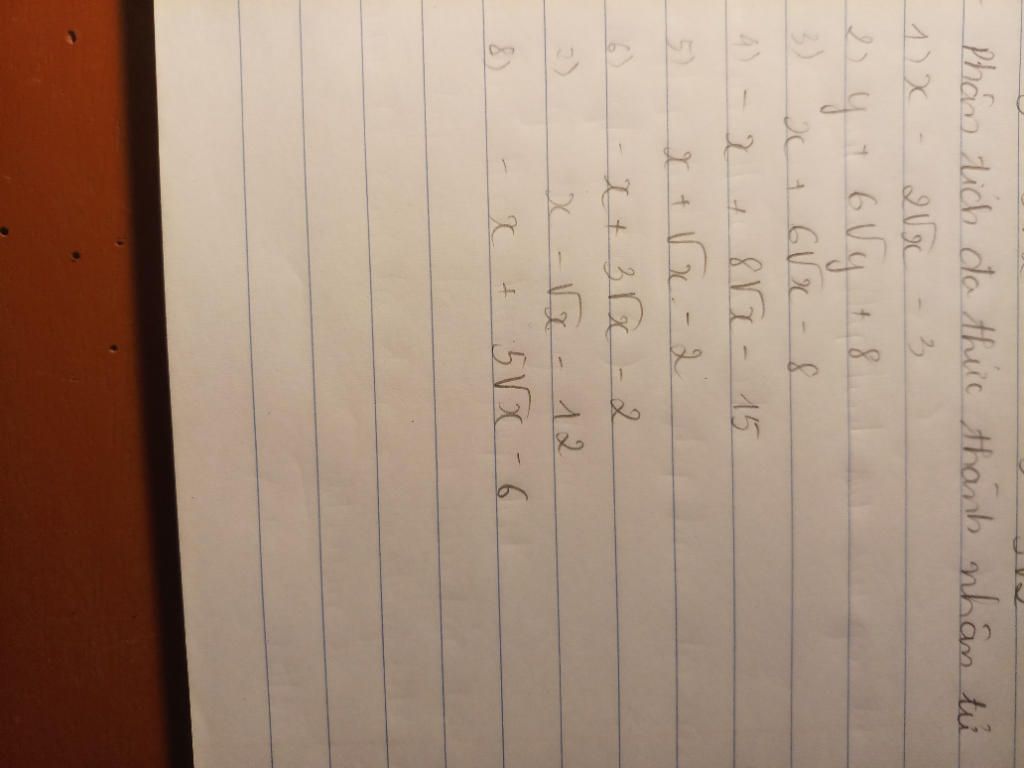 - Phân tích đa thức thành nhân tử
1) x - 2√x - 3
2) y + 6√y + 8
3) x + 6√x - 8
4) - x + 8√x - 15
5) x + √x - 2
6) - x + 3√x - 2
7) x - √x - 12
8) - x + 5√x - 6